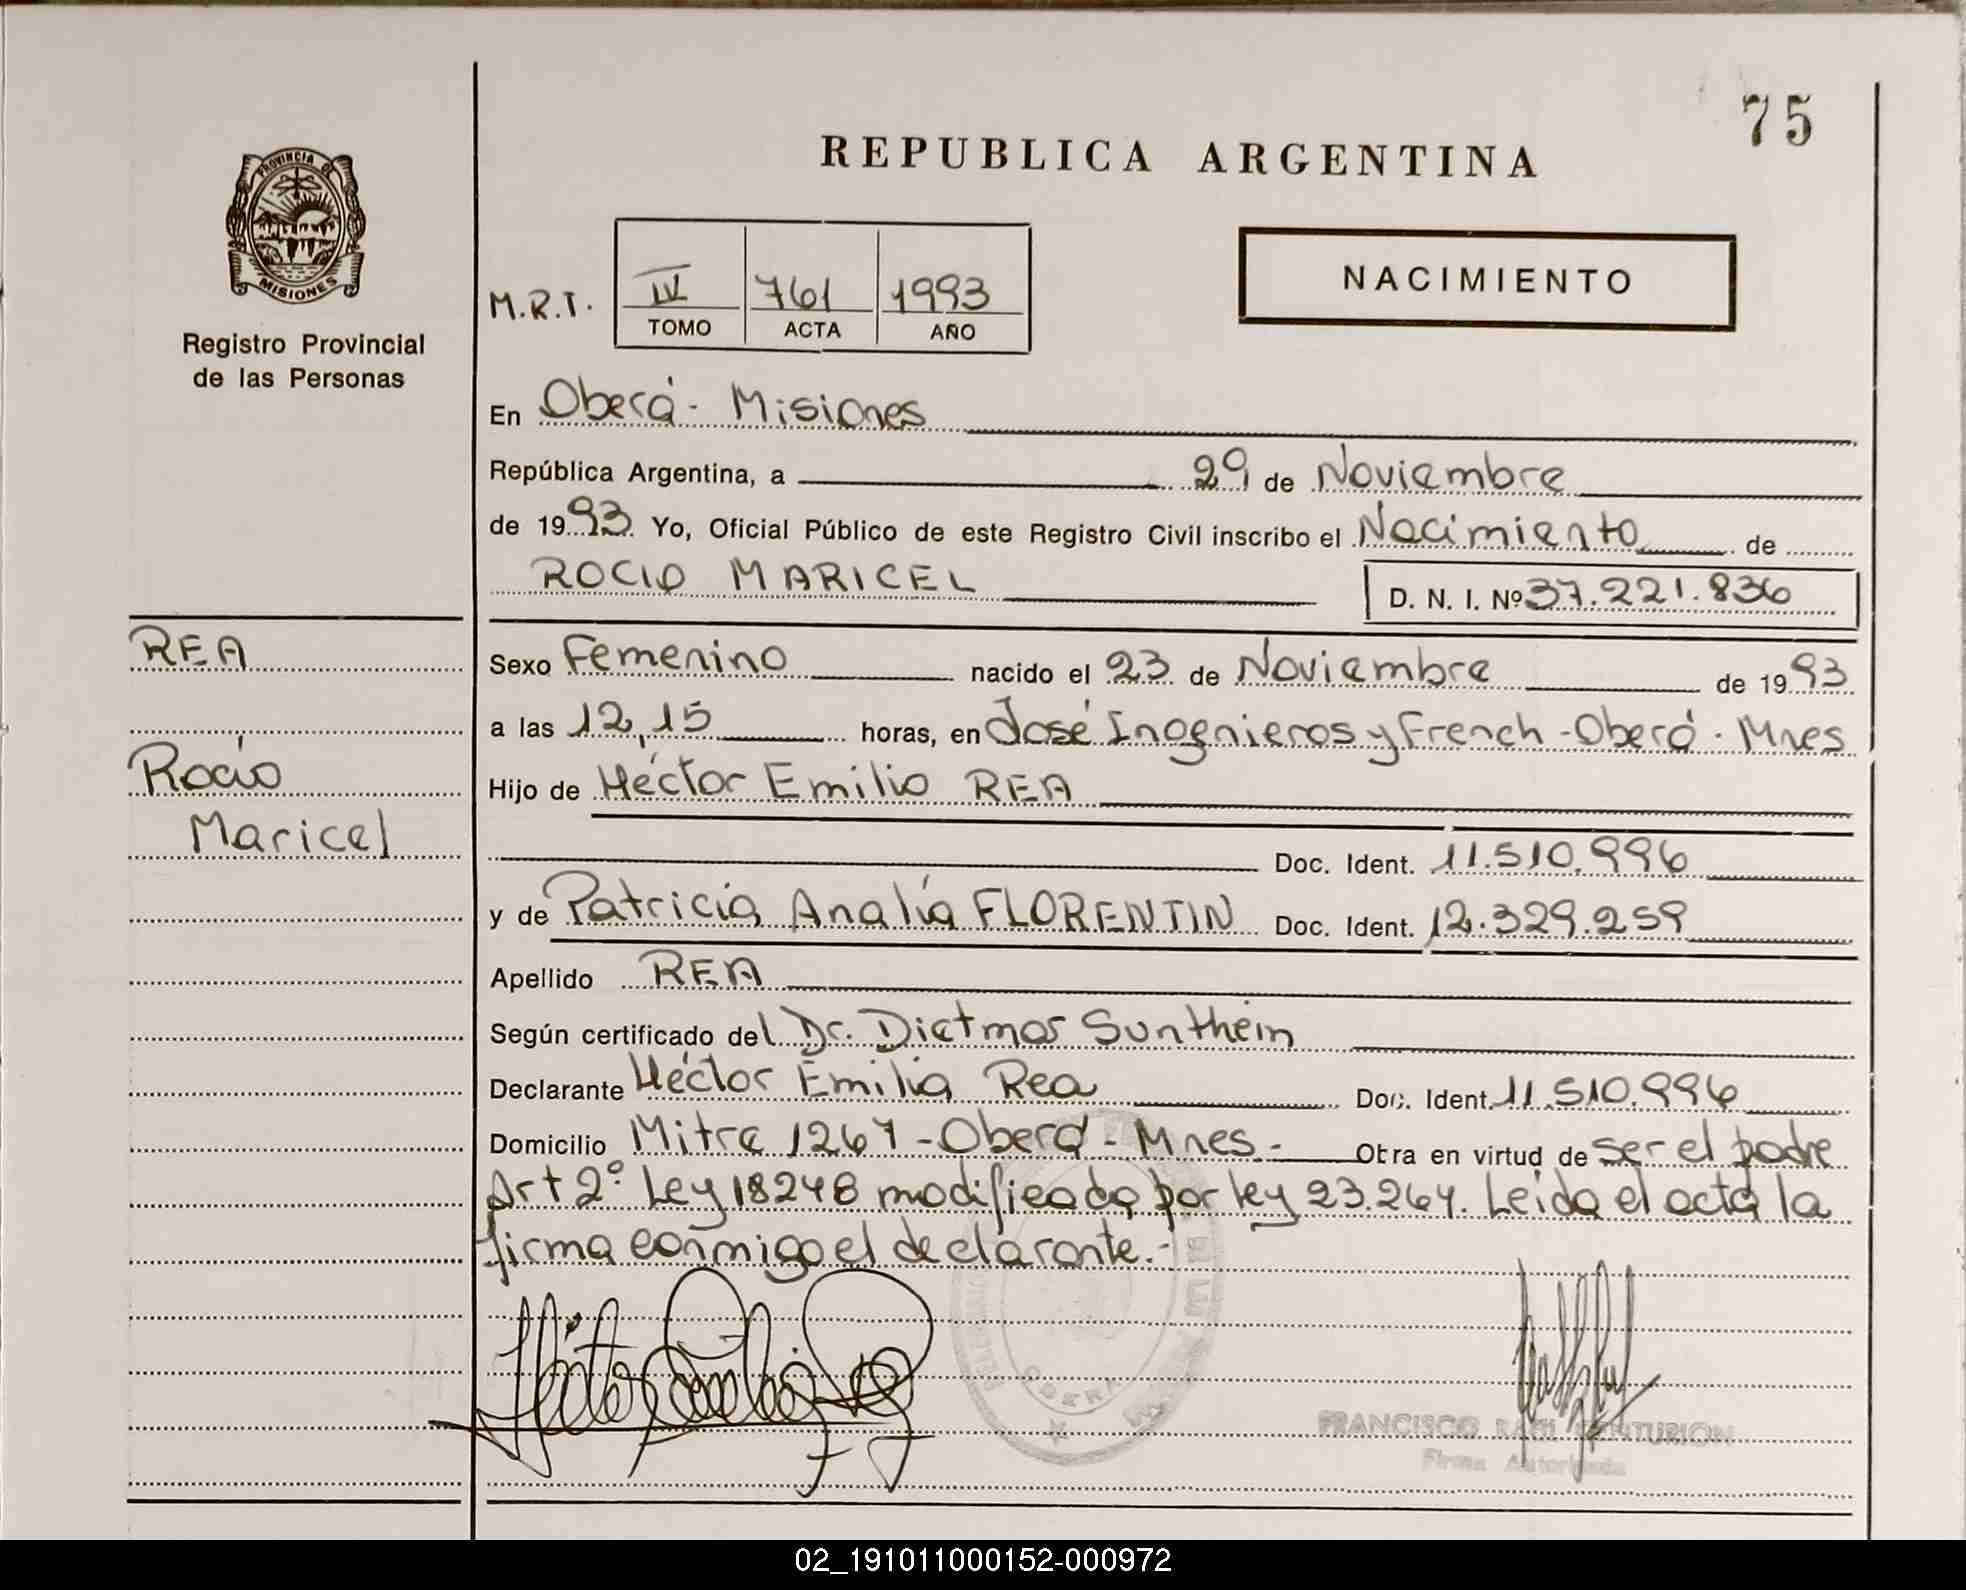 75
REPUBLICA ARGENTINA
PROVINCIA DE
MISIONES
Registro Provincial
de las Personas
NACIMIENTO
M.R.T. IV 761 1993
TOMO ACTA AÑO
En Oberá - Misiones
República Argentina, a 29 de Noviembre
de 1993 Yo, Oficial Público de este Registro Civil inscribo el Nacimiento de
ROCIO MARICEL D. N. I. Nº 37.221.836
REA
Sexo Femenino nacido el 23 de Noviembre de 1993
a las 12,15 horas, en José Ingenieros y French - Oberá - Mnes
Rocío
Maricel
Hijo de Héctor Emilio REA
Doc. Ident. 11.510.996
y de Patricia Analía FLORENTIN Doc. Ident. 12.329.259
Apellido REA
Según certificado del Dr. Dietmar Sunthein
Declarante Héctor Emilio Rea Doc. Ident. 11.510.996
Domicilio Mitre 1267 - Oberá - Mnes - Obra en virtud de ser el padre
Art 2º Ley 18248 modificada por ley 23.264. Leída el acta la
firma conmigo el declarante.-
OBERA
FRANCISCO CENTURION
Firma Autorizada
02_191011000152-000972